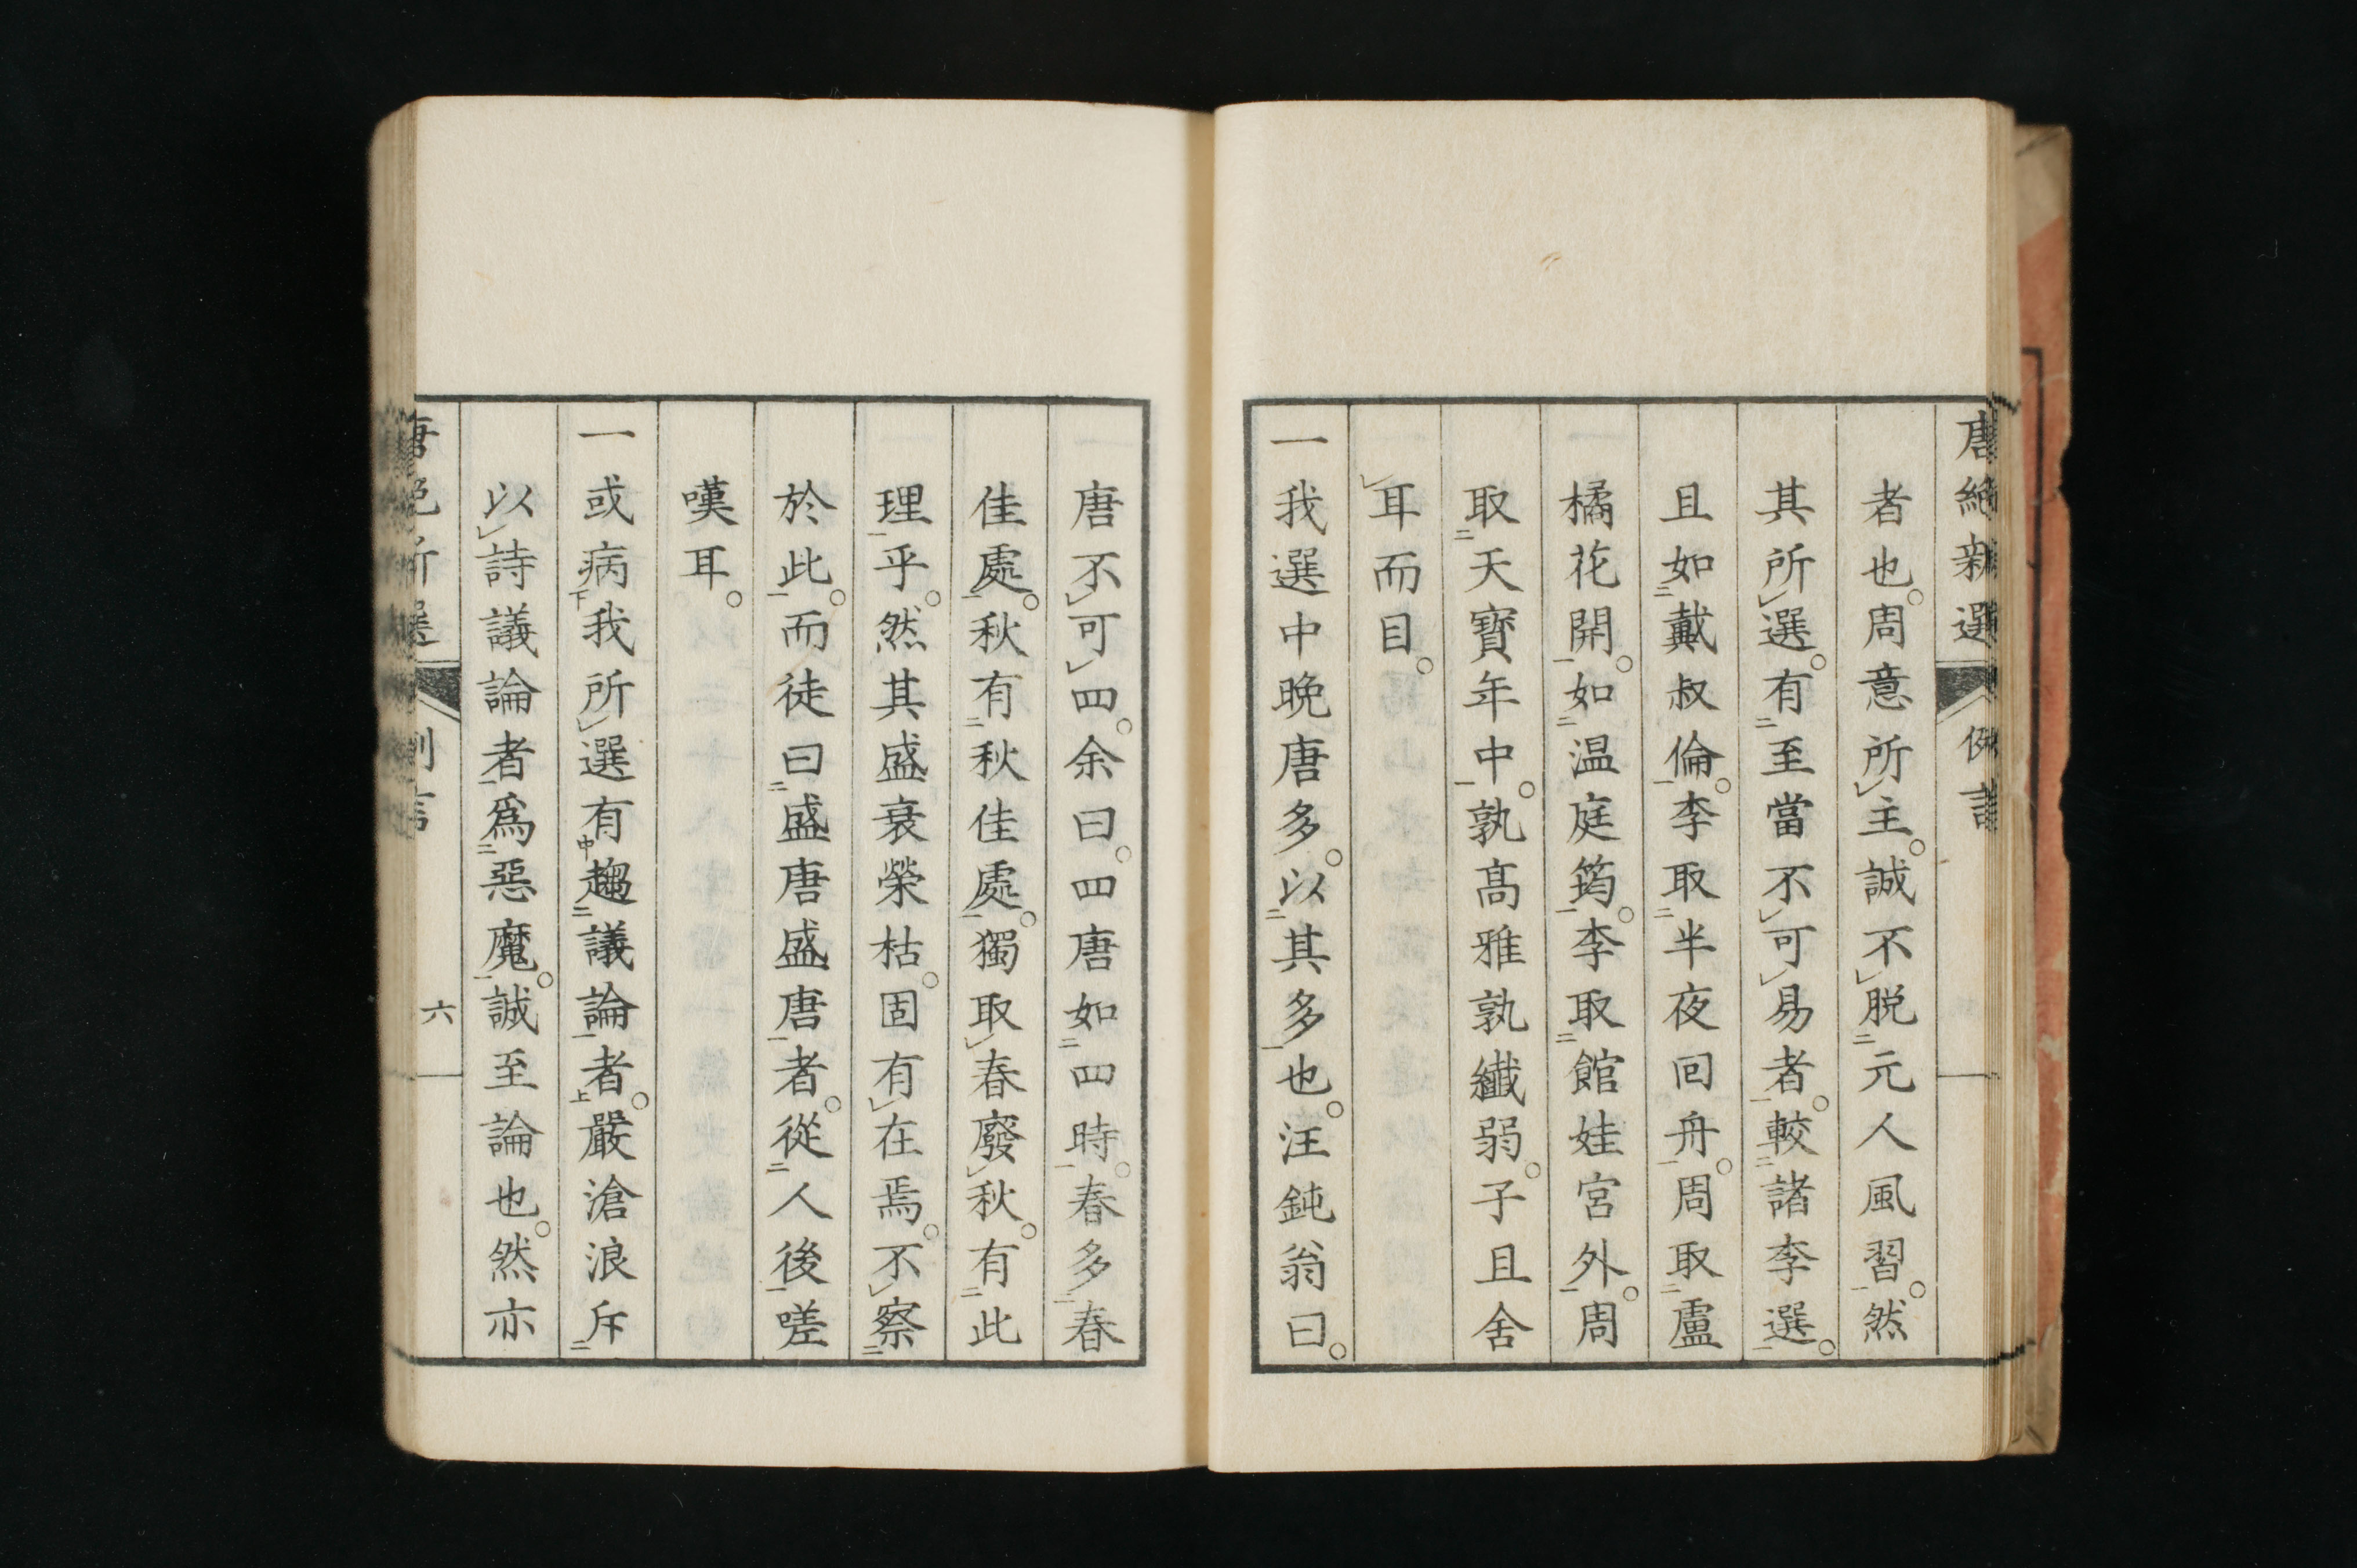 唐絶新選 例言
者也。周意所㆑主。誠不㆑脱㆓元人風習㆒。然
其所㆑選。有㆘至當不㆑可㆑易者㆒。較㆓諸李選㆒。
且如㆓戴叔倫㆒。李取㆓半夜回舟㆒。周取㆓盧
橘花開㆒。如㆓温庭筠㆒。李取㆓館娃宮外㆒。周
取㆓天寶年中㆒。孰高雅孰纖弱。子且舍
㆑耳而目。
一我選中晩唐多。以㆓其多㆒也。汪鈍翁曰。
唐不㆑可㆑四。余曰。四唐如㆓四時㆒。春多㆓春
佳處㆒。秋有㆓秋佳處㆒。獨取㆑春廢㆑秋。有㆓此
理㆒乎。然其盛衰榮枯。固有㆑在焉。不㆑察㆓
於此㆒。而徒曰㆓盛唐盛唐㆒者。從㆓人後㆒嗟
嘆耳。
一或病㆘我所㆑選有㆗趨㆓議論㆒者㆖。嚴滄浪斥㆘
以㆑詩議論者㆒爲㆓惡魔㆒。誠至論也。然亦
唐絶新選 例言 六